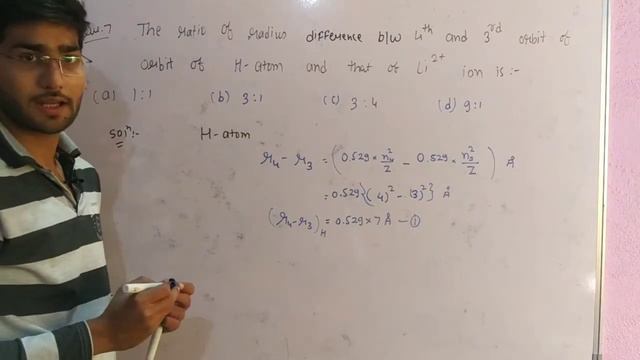 Que.7 The ratio of radius difference b/w 4th and 3rd orbit of
orbit of H-atom and that of Li2+ ion is:-
(a) 1:1 (b) 3:1 (c) 3:4 (d) 9:1
Soln:- H-atom
r4 - r3 = (0.529 × n4²/Z - 0.529 × n3²/Z) Å
= 0.529 {(4)² - (3)²} Å
(r4 - r3)H = 0.529 × 7 Å - ①